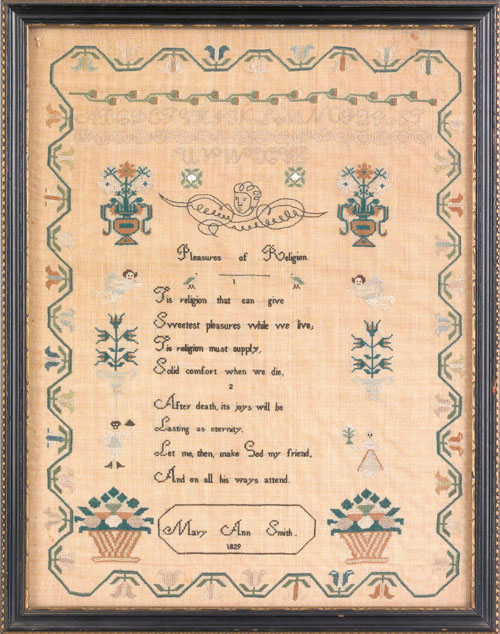 Pleasures of Religion.
1
Tis religion that can give
Sweetest pleasures while we live;
Tis religion must supply,
Solid comfort when we die,
2
After death, its joys will be
Lasting as eternity.
Let me, then, make God my friend,
And on all his ways attend.
Mary Ann Smith.
1829